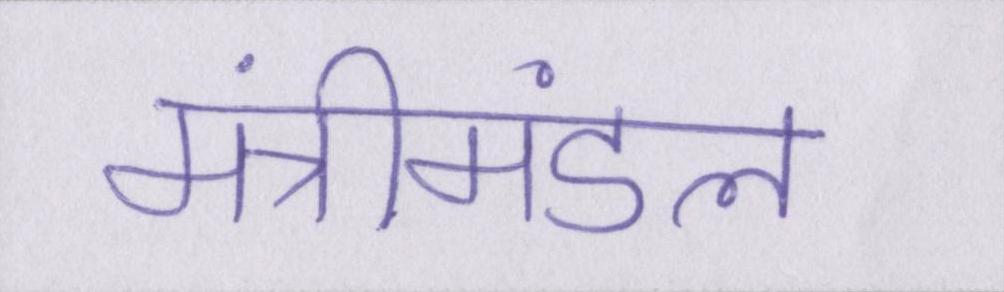 मंत्रीमंडल